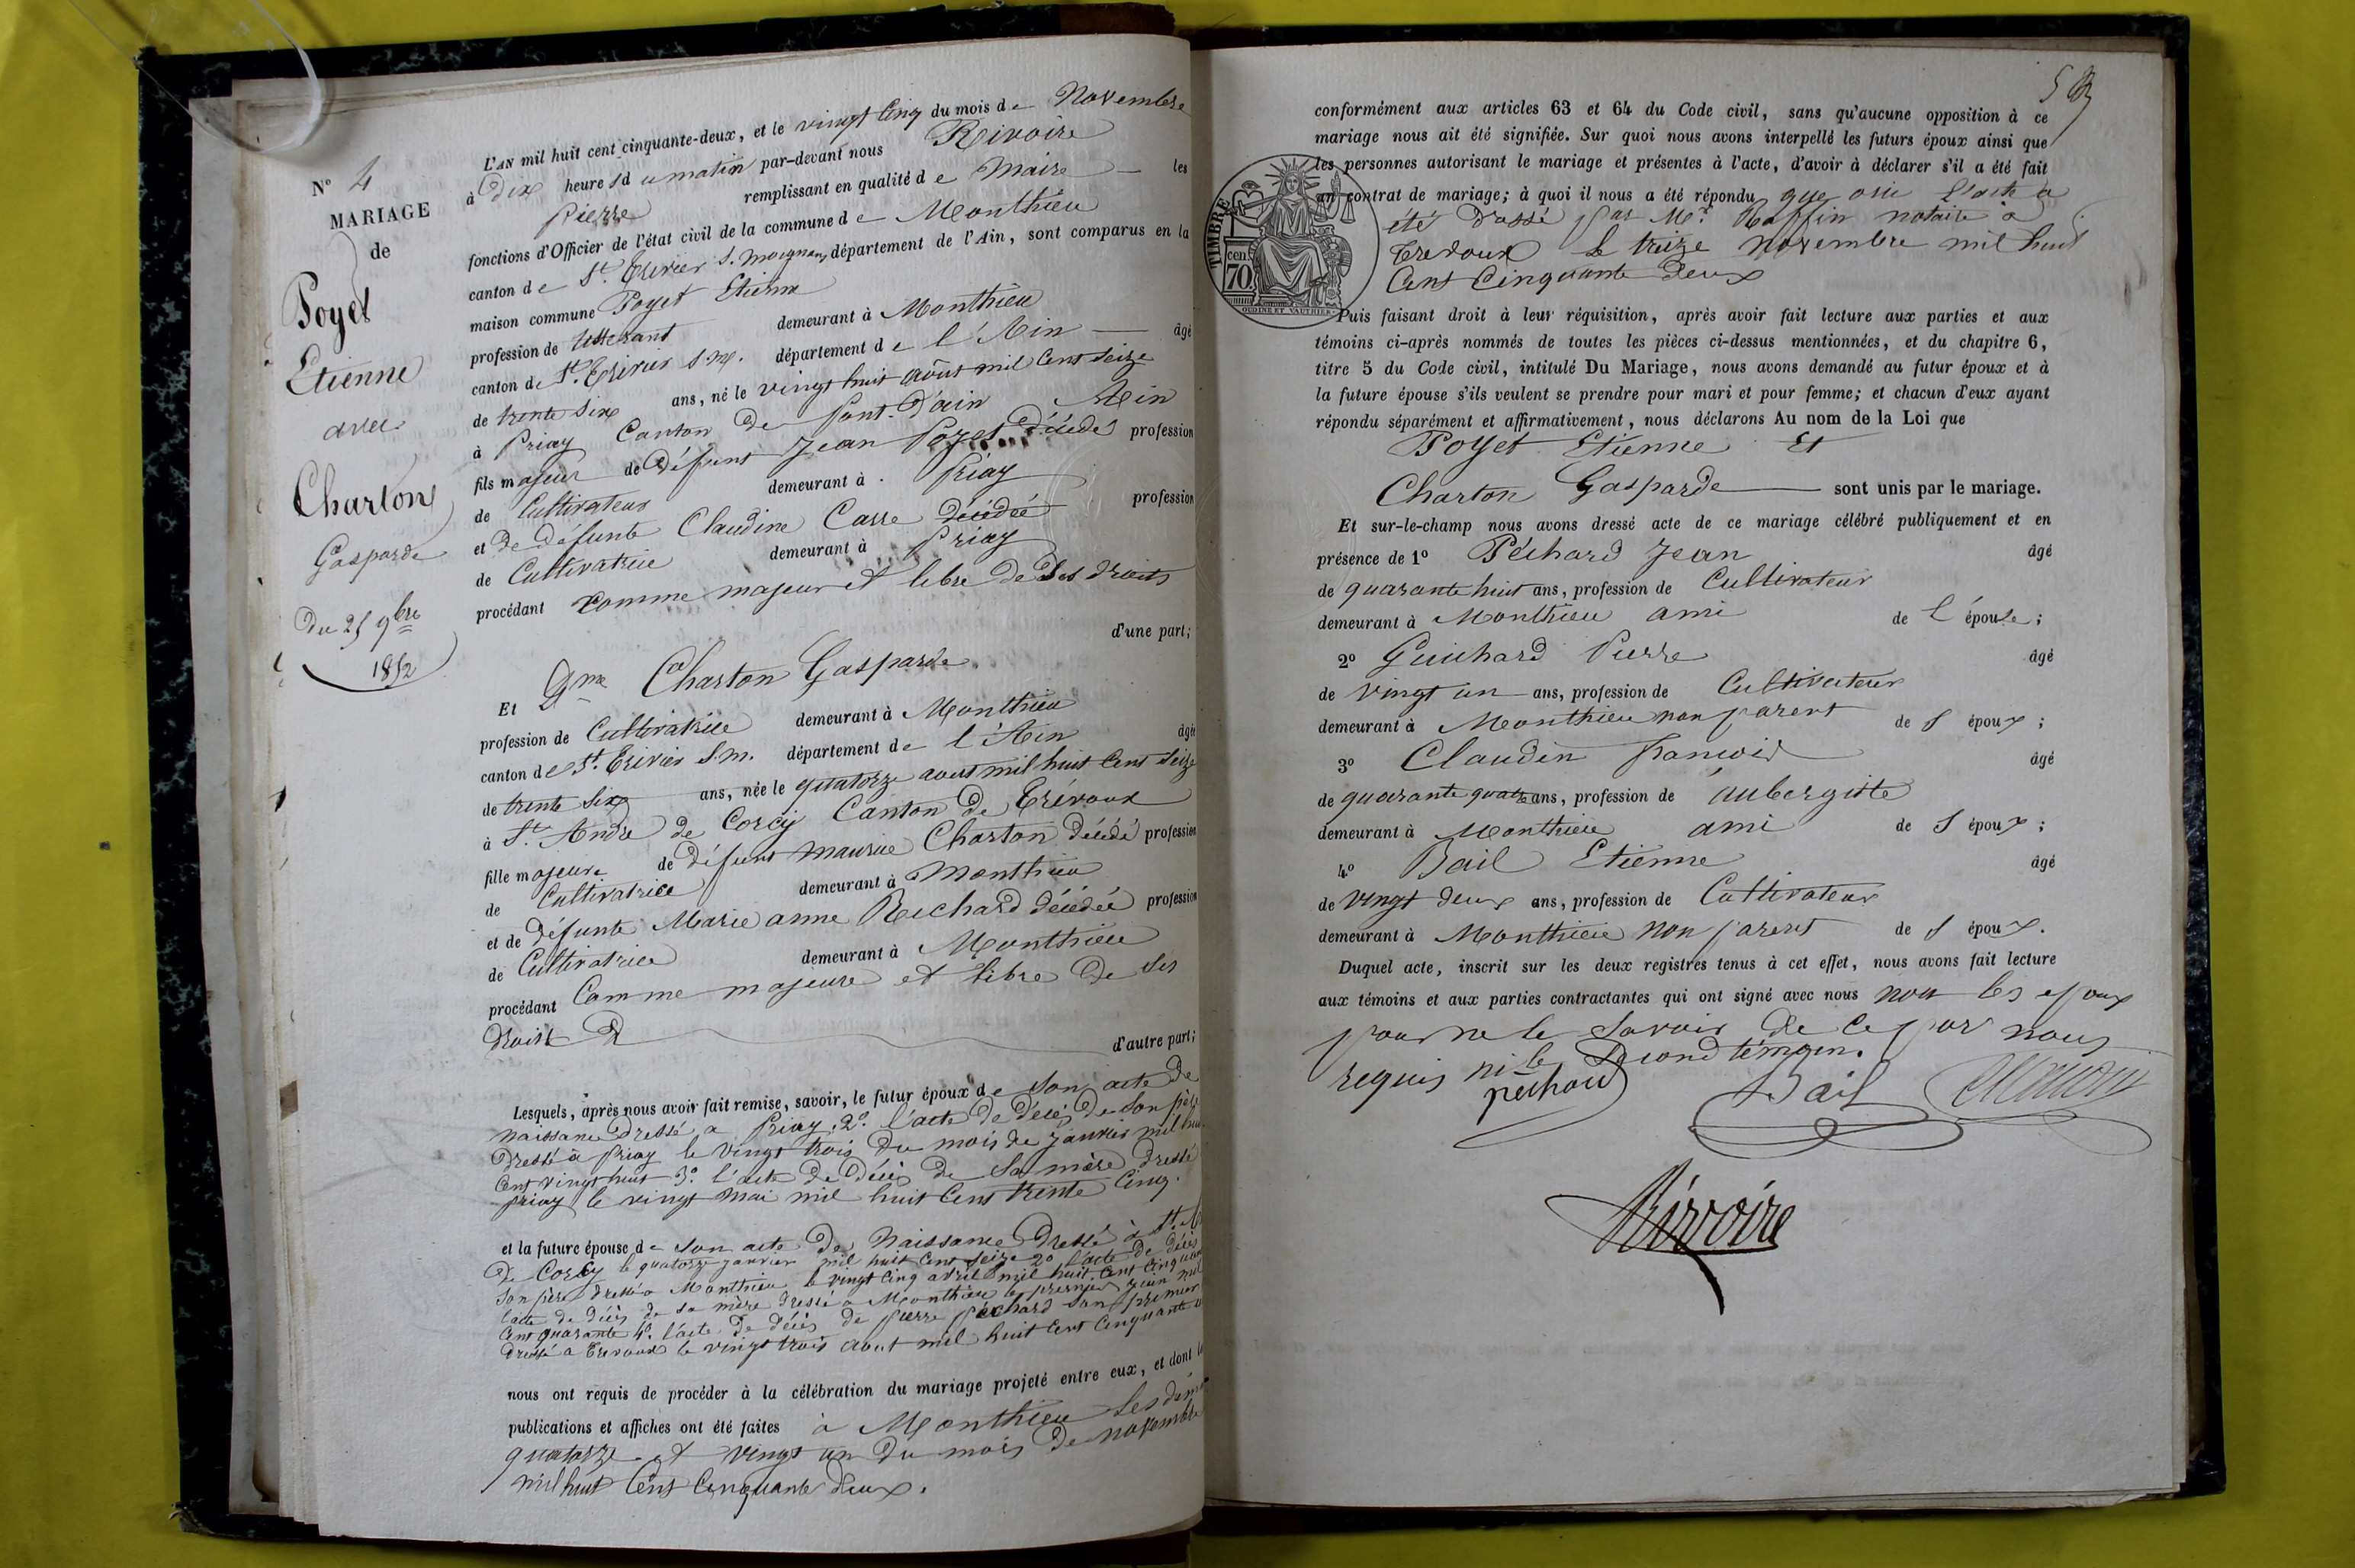 N° 4
MARIAGE
de
Poyet
Etienne
avec
Charton
Gasparde
Du 25 9bre
1852
L'AN mil huit cent cinquante-deux, et le vingt Cinq du mois de Novembre
à Dix heures du matin par-devant nous Rivoire
Pierre remplissant en qualité de Maire les
fonctions d'Officier de l'état civil de la commune de Monthieu
canton de St. Trivier S. Moignans, département de l'Ain, sont comparus en la
maison commune Poyet Etienne
profession de demeurant à Monthieu
canton de St. Trivier S. M. département de l'Ain âgé
de trente Six ans, né le vingt huit août mil Cent Seize
à Priay Canton De Pont-D'ain Ain
fils majeur de Défunt Jean Poyet Décédé profession
de Cultivateur demeurant à Priay
et De défunte Claudine Casse décédée profession
de Cultivatrice demeurant à Priay
procédant comme majeur et libre De Ses droits
d'une part;
Et Dme Charton Gasparde
profession de Cultivatrice demeurant à Monthieu
canton de St. Trivier S. M. département de l'Ain âgée
de trente Six ans, née le quatorze aout mil huit Cent Seize
à St. André de Corcy Canton De Trévoux
fille majeure de Défunt Maurice Charton Décédé profession
de Cultivatrice demeurant à Monthieu
et de Défunte Marie anne décédée profession
de Cultivatrice demeurant à Monthieu
procédant Comme majeure et libre De Ses
Droits
d'autre part;
Lesquels, après nous avoir fait remise, savoir, le futur époux de Son acte De
naissance Dressé a Priay, 2° l'acte De Décès De Son père
Dressé à Priay le vingt trois Du mois De Janvier mil huit
Cent vingt huit 3° l'acte De Décès De Sa mère Dressé
Priay le vingt Mai mil huit Cent trente Cinq.
et la future épouse de Son acte De Naissance Dressé à St. A
De Corcy le quatorze janvier mil huit Cent Seize 2° l'acte De décès
Son père Dressé a Monthieu le vingt Cinq avril mil huit Cent Cinquante
l'acte de Décès de Sa mère Dressé a Monthieu le premier Juin mil
Cent quarante 4° l'acte De Décès De Pierre Péchard Son premier
Dressé a Trevoux le vingt trois aout mil huit Cent Cinquante
nous ont requis de procéder à la célébration du mariage projeté entre eux, et dont
publications et affiches ont été faites à Monthieu les
quatorze et vingt un Du mois De Novembre
mil huit Cent Cinquante Deux.
conformément aux articles 63 et 64 du Code civil, sans qu'aucune opposition à ce
mariage nous ait été signifiée. Sur quoi nous avons interpellé les futurs époux ainsi que
les personnes autorisant le mariage et présentes à l'acte, d'avoir à déclarer s'il a été fait
un contrat de mariage; à quoi il nous a été répondu que oui l'acte a
été Dressé par Mr. notaire a
Trevoux le treize Novembre mil huit
Cent Cinquante Deux
TIMBRE
cen.
70
OUDINE ET VAUTHIER.
Puis faisant droit à leur réquisition, après avoir fait lecture aux parties et aux
témoins ci-après nommés de toutes les pièces ci-dessus mentionnées, et du chapitre 6,
titre 5 du Code civil, intitulé Du Mariage, nous avons demandé au futur époux et à
la future épouse s'ils veulent se prendre pour mari et pour femme; et chacun d'eux ayant
répondu séparément et affirmativement, nous déclarons Au nom de la Loi que
Poyet Etienne Et
Charton Gasparde sont unis par le mariage.
Et sur-le-champ nous avons dressé acte de ce mariage célébré publiquement et en
présence de 1° Péchard Jean âgé
de quarante huit ans, profession de Cultivateur
demeurant à Monthieu ami de l'épouse;
2° Guichard Pierre âgé
de vingt un ans, profession de Cultivateur
demeurant à Monthieu non parent de l'époux;
3° Claudin francois âgé
de quarante quatre ans, profession de aubergiste
demeurant à Monthieu ami de l'époux;
4° Bail Etienne âgé
de vingt deux ans, profession de Cultivateur
demeurant à Monthieu non parent de l'époux.
Duquel acte, inscrit sur les deux registres tenus à cet effet, nous avons fait lecture
aux témoins et aux parties contractantes qui ont signé avec nous non les époux
pour ne le Savoir De Ce par nous
requis ni le Second témoin.
péchard Bail
Rivoire